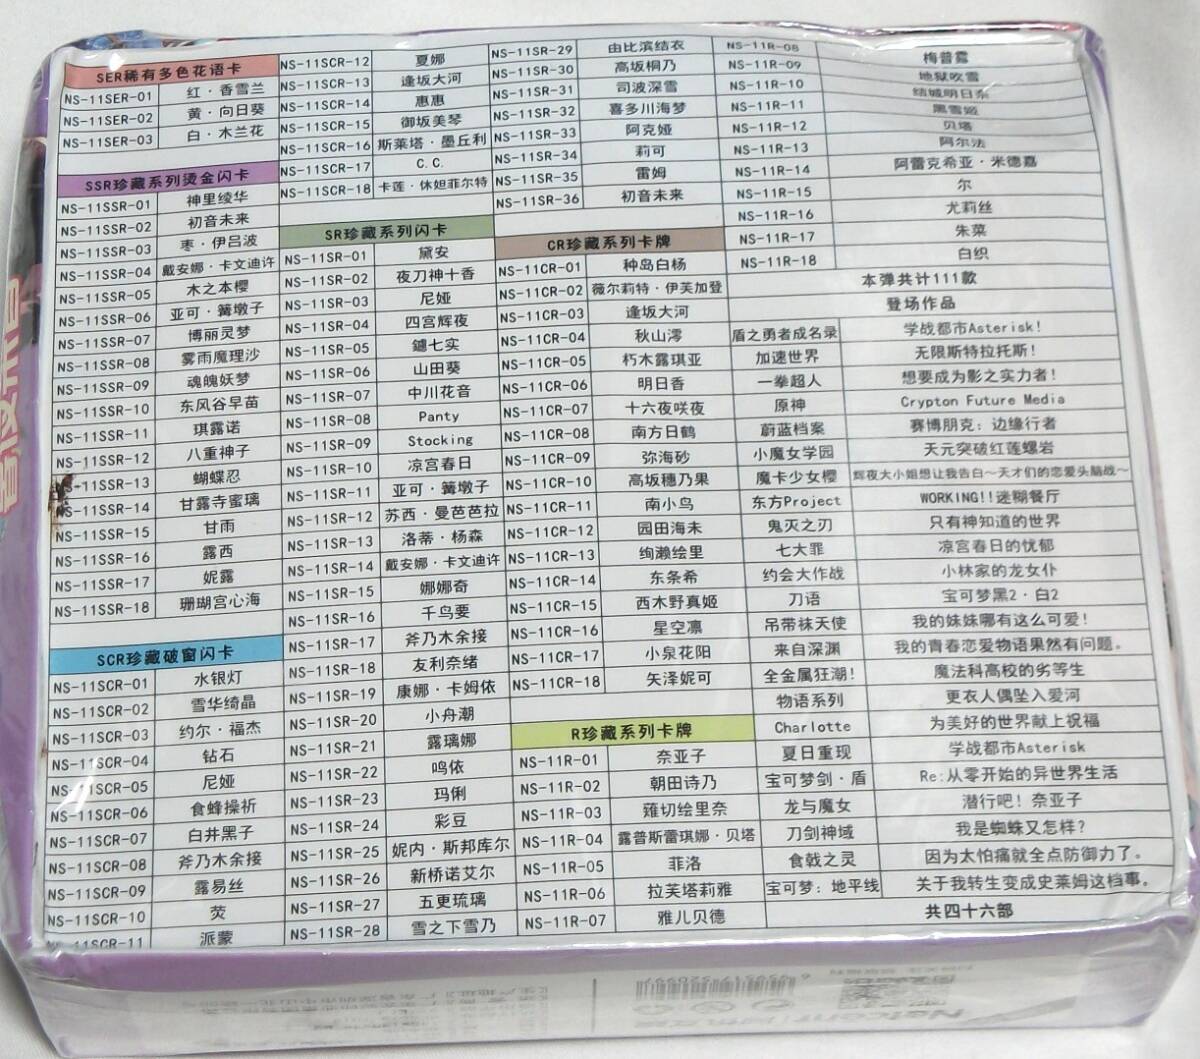 SER稀有多色花语卡
NS-11SER-01 红·香雪兰
NS-11SER-02 黄·向日葵
NS-11SER-03 白·木兰花
SSR珍藏系列烫金闪卡
NS-11SSR-01 神里绫华
NS-11SSR-02 初音未来
NS-11SSR-03 枣·伊吕波
NS-11SSR-04 戴安娜·卡文迪许
NS-11SSR-05 木之本樱
NS-11SSR-06 亚可·篝墩子
NS-11SSR-07 博丽灵梦
NS-11SSR-08 雾雨魔理沙
NS-11SSR-09 魂魄妖梦
NS-11SSR-10 东风谷早苗
NS-11SSR-11 琪露诺
NS-11SSR-12 八重神子
NS-11SSR-13 蝴蝶忍
NS-11SSR-14 甘露寺蜜璃
NS-11SSR-15 甘雨
NS-11SSR-16 露西
NS-11SSR-17 妮露
NS-11SSR-18 珊瑚宫心海
SCR珍藏破窗闪卡
NS-11SCR-01 水银灯
NS-11SCR-02 雪华绮晶
NS-11SCR-03 约尔·福杰
NS-11SCR-04 钻石
NS-11SCR-05 尼娅
NS-11SCR-06 食蜂操祈
NS-11SCR-07 白井黑子
NS-11SCR-08 斧乃木余接
NS-11SCR-09 露易丝
NS-11SCR-10 荧
NS-11SCR-11 派蒙
NS-11SCR-12 夏娜
NS-11SCR-13 逢坂大河
NS-11SCR-14 惠惠
NS-11SCR-15 御坂美琴
NS-11SCR-16 斯莱塔·墨丘利
NS-11SCR-17 C.C.
NS-11SCR-18 卡莲·休妲菲尔特
SR珍藏系列闪卡
NS-11SR-01 黛安
NS-11SR-02 夜刀神十香
NS-11SR-03 尼娅
NS-11SR-04 四宫辉夜
NS-11SR-05 鑢七实
NS-11SR-06 山田葵
NS-11SR-07 中川花音
NS-11SR-08 Panty
NS-11SR-09 Stocking
NS-11SR-10 凉宫春日
NS-11SR-11 亚可·篝墩子
NS-11SR-12 苏西·曼芭芭拉
NS-11SR-13 洛蒂·杨森
NS-11SR-14 戴安娜·卡文迪许
NS-11SR-15 娜娜奇
NS-11SR-16 千鸟要
NS-11SR-17 斧乃木余接
NS-11SR-18 友利奈绪
NS-11SR-19 康娜·卡姆依
NS-11SR-20 小舟潮
NS-11SR-21 露璃娜
NS-11SR-22 鸣依
NS-11SR-23 玛俐
NS-11SR-24 彩豆
NS-11SR-25 妮内·斯邦库尔
NS-11SR-26 新桥诺艾尔
NS-11SR-27 五更琉璃
NS-11SR-28 雪之下雪乃
NS-11SR-29 由比滨结衣
NS-11SR-30 高坂桐乃
NS-11SR-31 司波深雪
NS-11SR-32 喜多川海梦
NS-11SR-33 阿克娅
NS-11SR-34 莉可
NS-11SR-35 雷姆
NS-11SR-36 初音未来
CR珍藏系列卡牌
NS-11CR-01 种岛白杨
NS-11CR-02 薇尔莉特·伊芙加登
NS-11CR-03 逢坂大河
NS-11CR-04 秋山澪
NS-11CR-05 朽木露琪亚
NS-11CR-06 明日香
NS-11CR-07 十六夜咲夜
NS-11CR-08 南方日鹤
NS-11CR-09 弥海砂
NS-11CR-10 高坂穗乃果
NS-11CR-11 南小鸟
NS-11CR-12 园田海未
NS-11CR-13 绚濑绘里
NS-11CR-14 东条希
NS-11CR-15 西木野真姬
NS-11CR-16 星空凛
NS-11CR-17 小泉花阳
NS-11CR-18 矢泽妮可
R珍藏系列卡牌
NS-11R-01 奈亚子
NS-11R-02 朝田诗乃
NS-11R-03 薙切绘里奈
NS-11R-04 露普斯蕾琪娜·贝塔
NS-11R-05 菲洛
NS-11R-06 拉芙塔莉雅
NS-11R-07 雅儿贝德
NS-11R-08 梅普露
NS-11R-09 地狱吹雪
NS-11R-10 结城明日奈
NS-11R-11 黑雪姬
NS-11R-12 贝塔
NS-11R-13 阿尔法
NS-11R-14 阿蕾克希亚·米德嘉
NS-11R-15 尔
NS-11R-16 尤莉丝
NS-11R-17 朱菜
NS-11R-18 白织
本弹共计111款
登场作品
盾之勇者成名录 学战都市Asterisk!
加速世界 无限斯特拉托斯!
一拳超人 想要成为影之实力者!
原神 Crypton Future Media
蔚蓝档案 赛博朋克: 边缘行者
小魔女学园 天元突破红莲螺岩
魔卡少女樱 辉夜大小姐想让我告白~天才们的恋爱头脑战~
东方Project WORKING!!迷糊餐厅
鬼灭之刃 只有神知道的世界
七大罪 凉宫春日的忧郁
约会大作战 小林家的龙女仆
刀语 宝可梦黑2·白2
吊带袜天使 我的妹妹哪有这么可爱!
来自深渊 我的青春恋爱物语果然有问题。
全金属狂潮! 魔法科高校的劣等生
物语系列 更衣人偶坠入爱河
Charlotte 为美好的世界献上祝福
夏日重现 学战都市Asterisk
宝可梦剑·盾 Re:从零开始的异世界生活
龙与魔女 潜行吧! 奈亚子
刀剑神域 我是蜘蛛又怎样?
食戟之灵 因为太怕痛就全点防御力了。
宝可梦: 地平线 关于我转生变成史莱姆这档事。
共四十六部